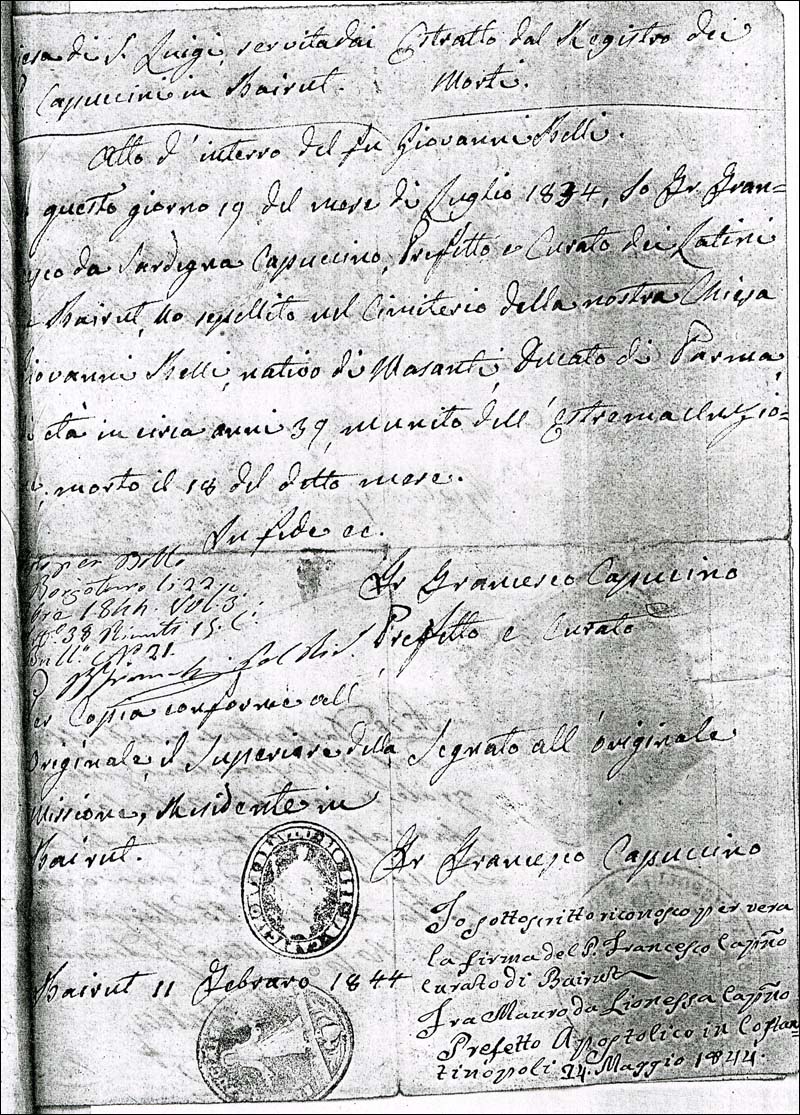 di S. Luigi, servita dai
Capuccini in Bairut.
Estratto dal Registro dei
Morti.
Atto d'interro del fu Giovanni Belli.
questo giorno 19 del mese di Luglio 1834, Io Fr. Fran=
da Sardegna Capuccino, Prefetto e Curato dei Latini
Bairut, ho sepellito nel Cimiterio della nostra Chiesa
iovanni Belli, nativo di Masanti, Ducato di Parma,
età in circa anni 39, munito dell'Estrema Unzio=
morto il 18 del detto mese.
In fede ec.
Fr Francesco Capuccino
Prefetto e Curato
per Bollo
Borgotaro li 22
1844. Vol. 3
38 15.
N° 21.
Per Copia conforme all'
Originale, il Superiore della
Missione, Residente in
Bairut.
Segnato all'originale
Fr Francesco Capuccino
Bairut 11 Febraro 1844
Io sottoscritto riconosco per vera
la firma del P. Francesco Capp̃no
Curato di Bairut
Fra Mauro da Lionessa Capp̃no
Prefetto Apostolico in Costan=
tinopoli 24 Maggio 1844.